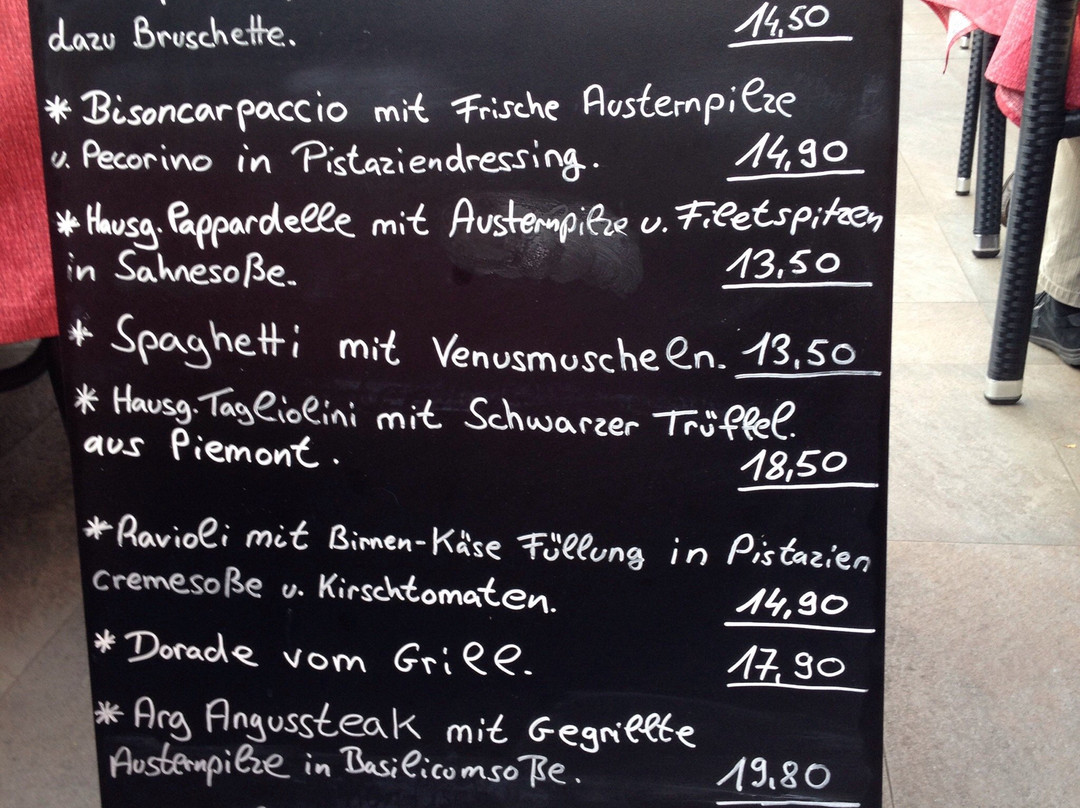 dazu Bruschette. 14,50
* Bisoncarpaccio mit Frische Austernpilze
u. Pecorino in Pistaziendressing. 14,90
* Hausg. Pappardelle mit Austernpilze u. Filetspitzen
in Sahnesoße. 13,50
* Spaghetti mit Venusmuscheln. 13,50
* Hausg. Tagliolini mit Schwarzer Trüffel.
aus Piemont. 18,50
* Ravioli mit Birnen-Käse Füllung in Pistazien
cremesoße u. Kirschtomaten. 14,90
* Dorade vom Grill. 17,90
* Arg Angussteak mit Gegrillte
Austernpilze in Basilicomsoße. 19,80